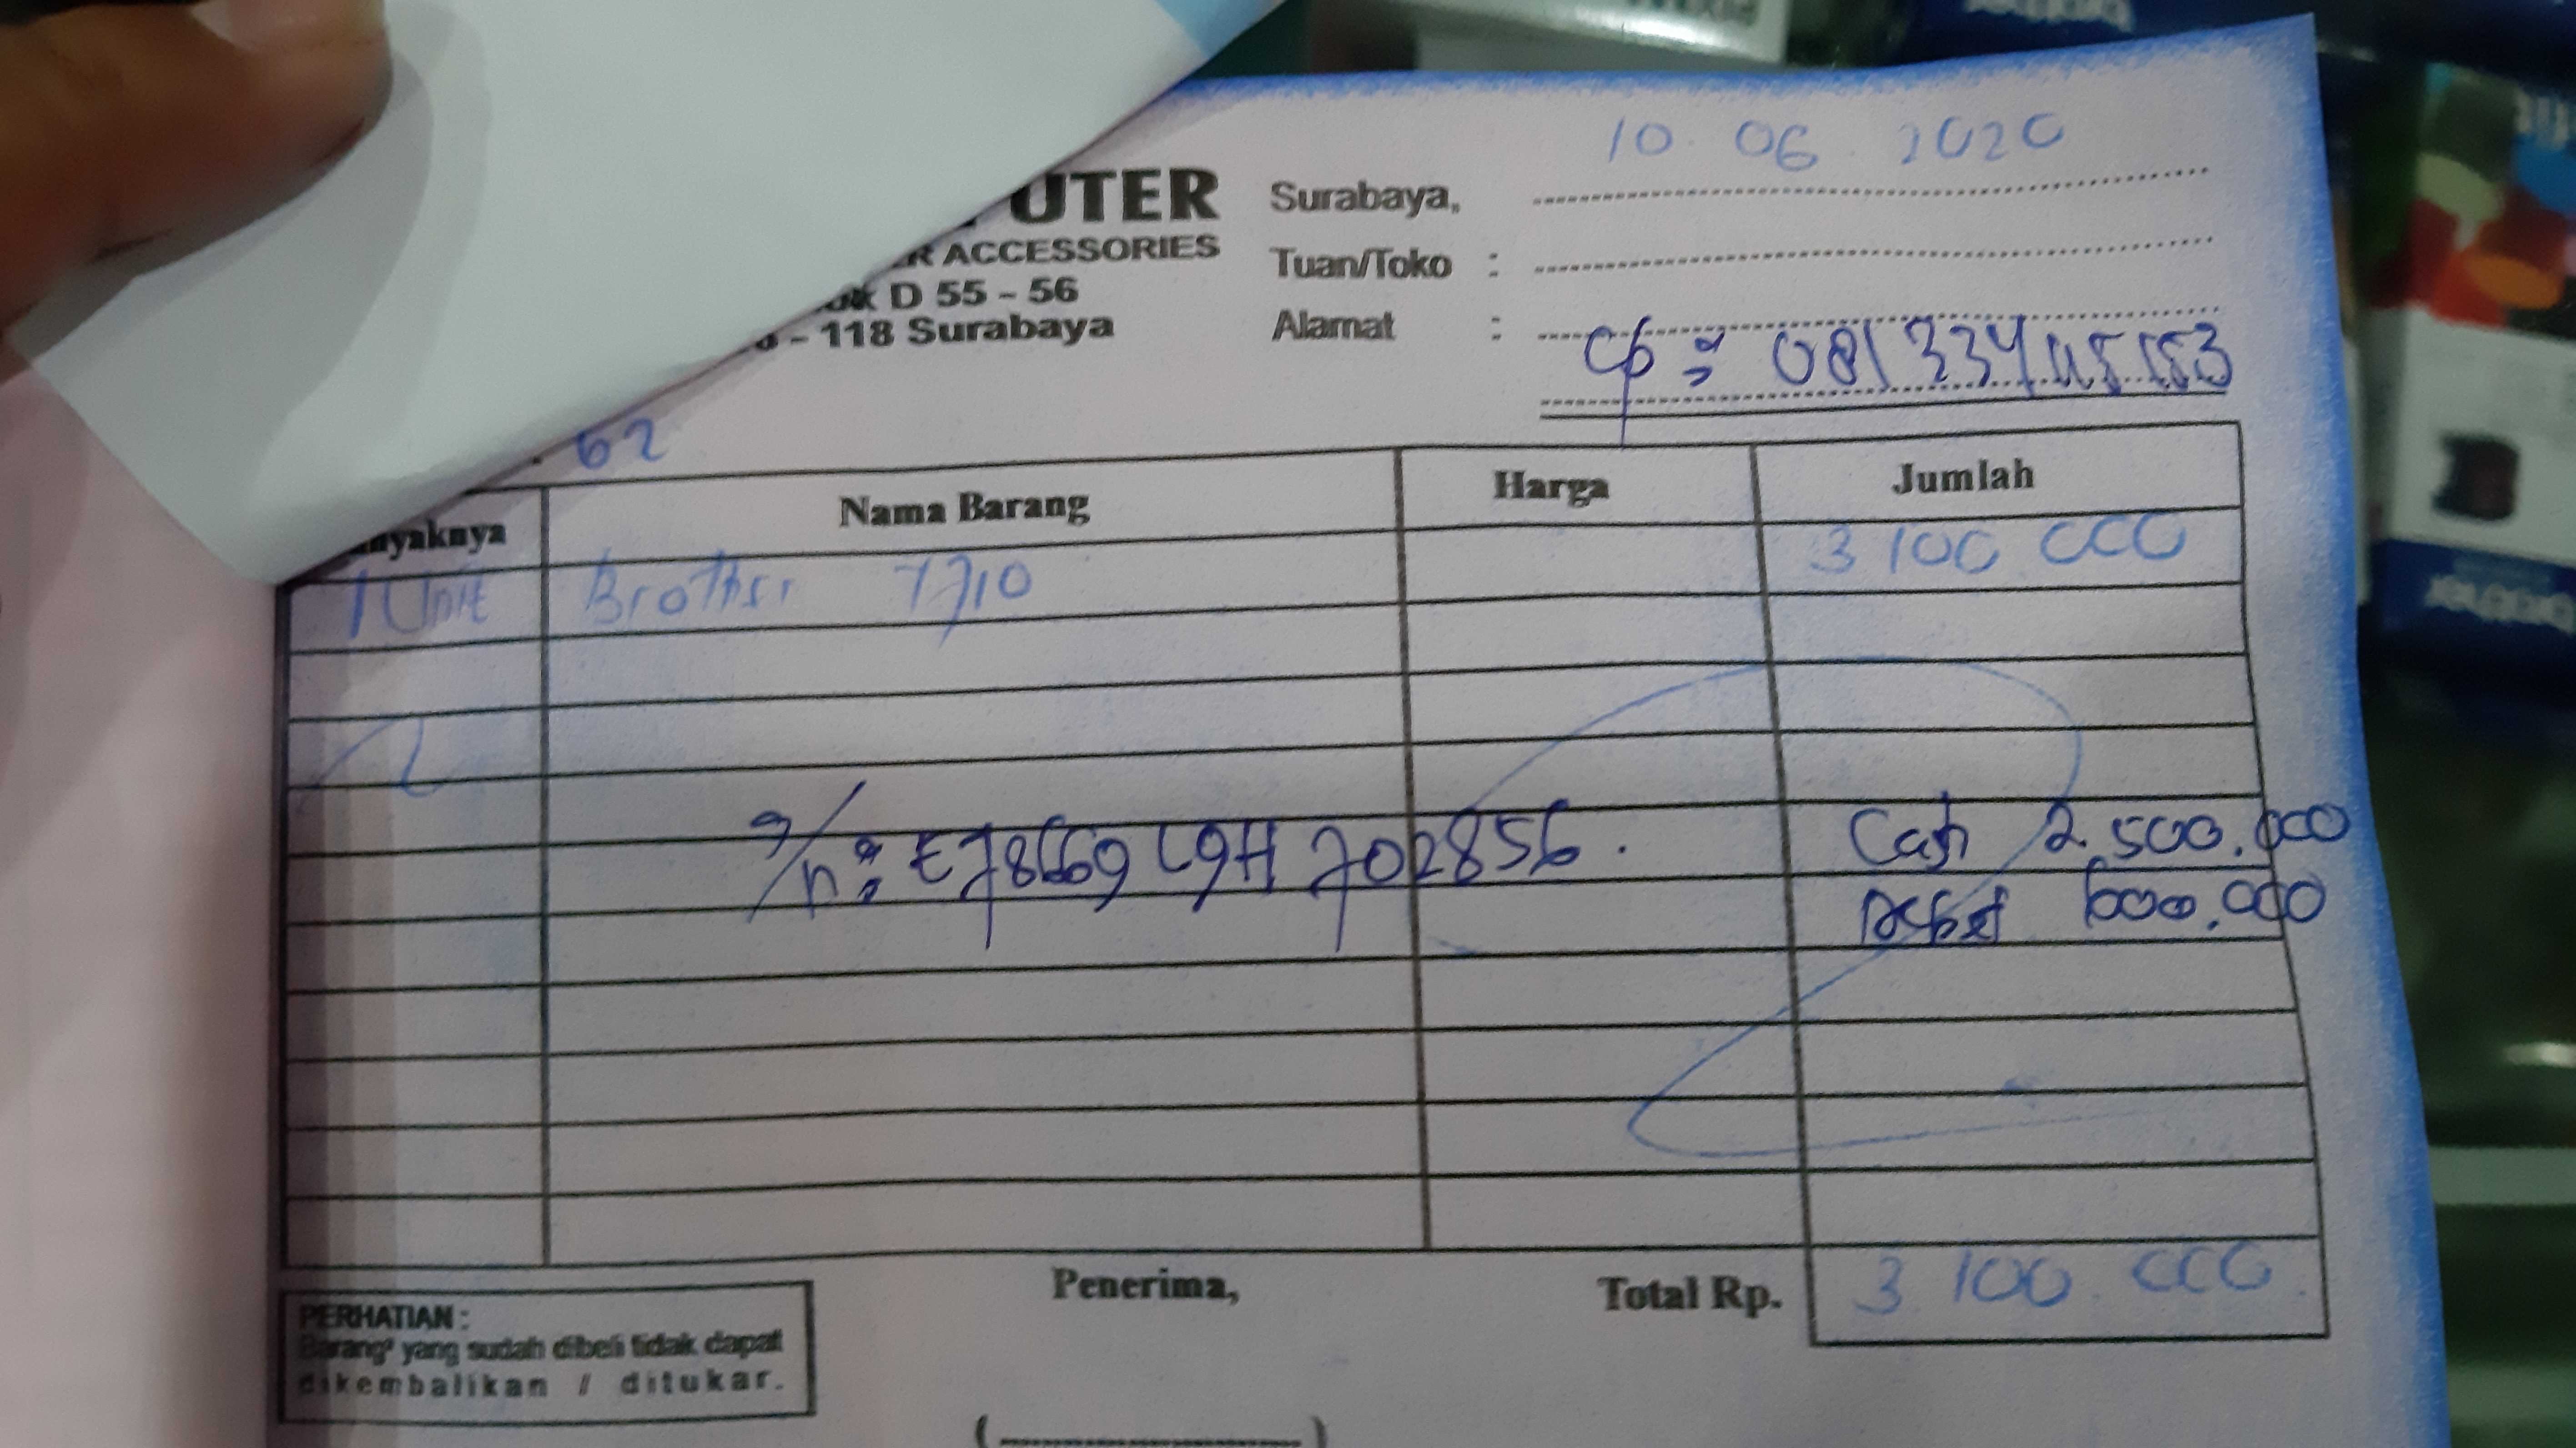 10. 06. 2020
UTER
Surabaya,
R ACCESSORIES
Tuan/Toko :
k D 55 - 56
- 118 Surabaya
Alamat :
Cp :
62
nyaknya Nama Barang Harga Jumlah
1 Unit Brother 7710 3 100 000
s/n : E78669 L9H 702856.
Cash 2.500.000
Debet 600.000
Penerima,
Total Rp. 3.100.000.
PERHATIAN :
Barang² yang sudah dibeli tidak dapat
dikembalikan / ditukar.